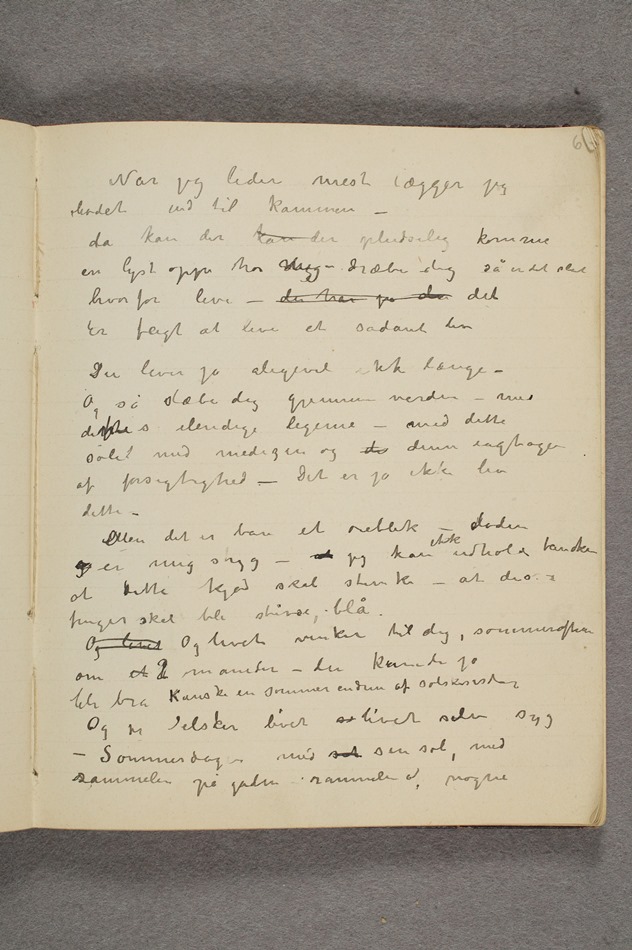 6
Når jeg lider mest lægger jeg
hodet ind til kammen –
da kan der kan der pludselig komme
en lyst oppe hos dig – dræbe dig så er det slut
hvorfor leve – det
Er feigt at leve et sådant liv
Du lever jo alligevel ikk længe –
Og så slæbe dig gjennem verden – med
dette s elendige legeme – med dette
søle med medizin og denne iagttagen
af forsigtighed – Det er jo ikke liv
dette –
Men det er bare et øieblik – døden
er mig styg – jeg kan ikk udholde tanken
at dette kjød skal stinke – at disse
finger skal bli stive, blå.
Og livet Og livet vinker til dig, sommeraftner
om 2 måneder – du kunde jo
bli bra Kanske en sommer endnu af solskinsdag
Og jeg elsker livet livet selv syg
– Sommerdage med sin sol, med
rammelen på gaden rammelen af, vogne